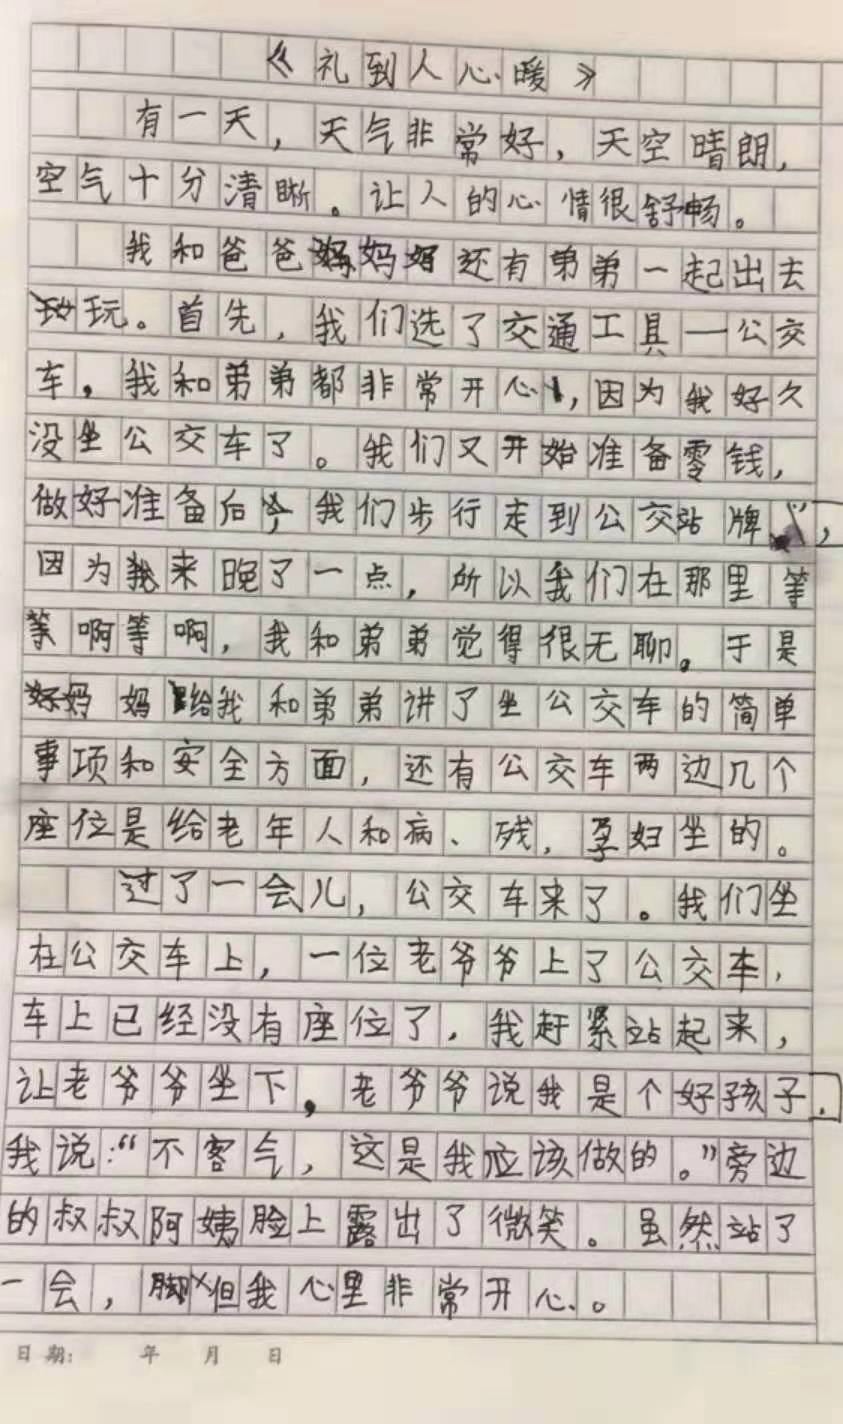 《礼到人心暖》
有一天，天气非常好，天空晴朗，
空气十分清晰。让人的心情很舒畅。
我和爸爸妈妈还有弟弟一起出去
玩。首先，我们选了交通工具一公交
车，我和弟弟都非常开心，因为我好久
没坐公交车了。我们又开始准备零钱，
做好准备后，我们步行走到公交站牌，
因为我来晚了一点，所以我们在那里等
等啊等啊，我和弟弟觉得很无聊。于是
妈妈给我和弟弟讲了坐公交车的简单
事项和安全方面，还有公交车两边几个
座位是给老年人和病、残，孕妇坐的。
过了一会儿，公交车来了。我们坐
在公交车上，一位老爷爷上了公交车，
车上已经没有座位了，我赶紧站起来，
让老爷爷坐下，老爷爷说我是个好孩子．
我说：“不客气，这是我应该做的。”旁边
的叔叔阿姨脸上露出了微笑。虽然站了
一会，但我心里非常开心。
日期： 年 月 日